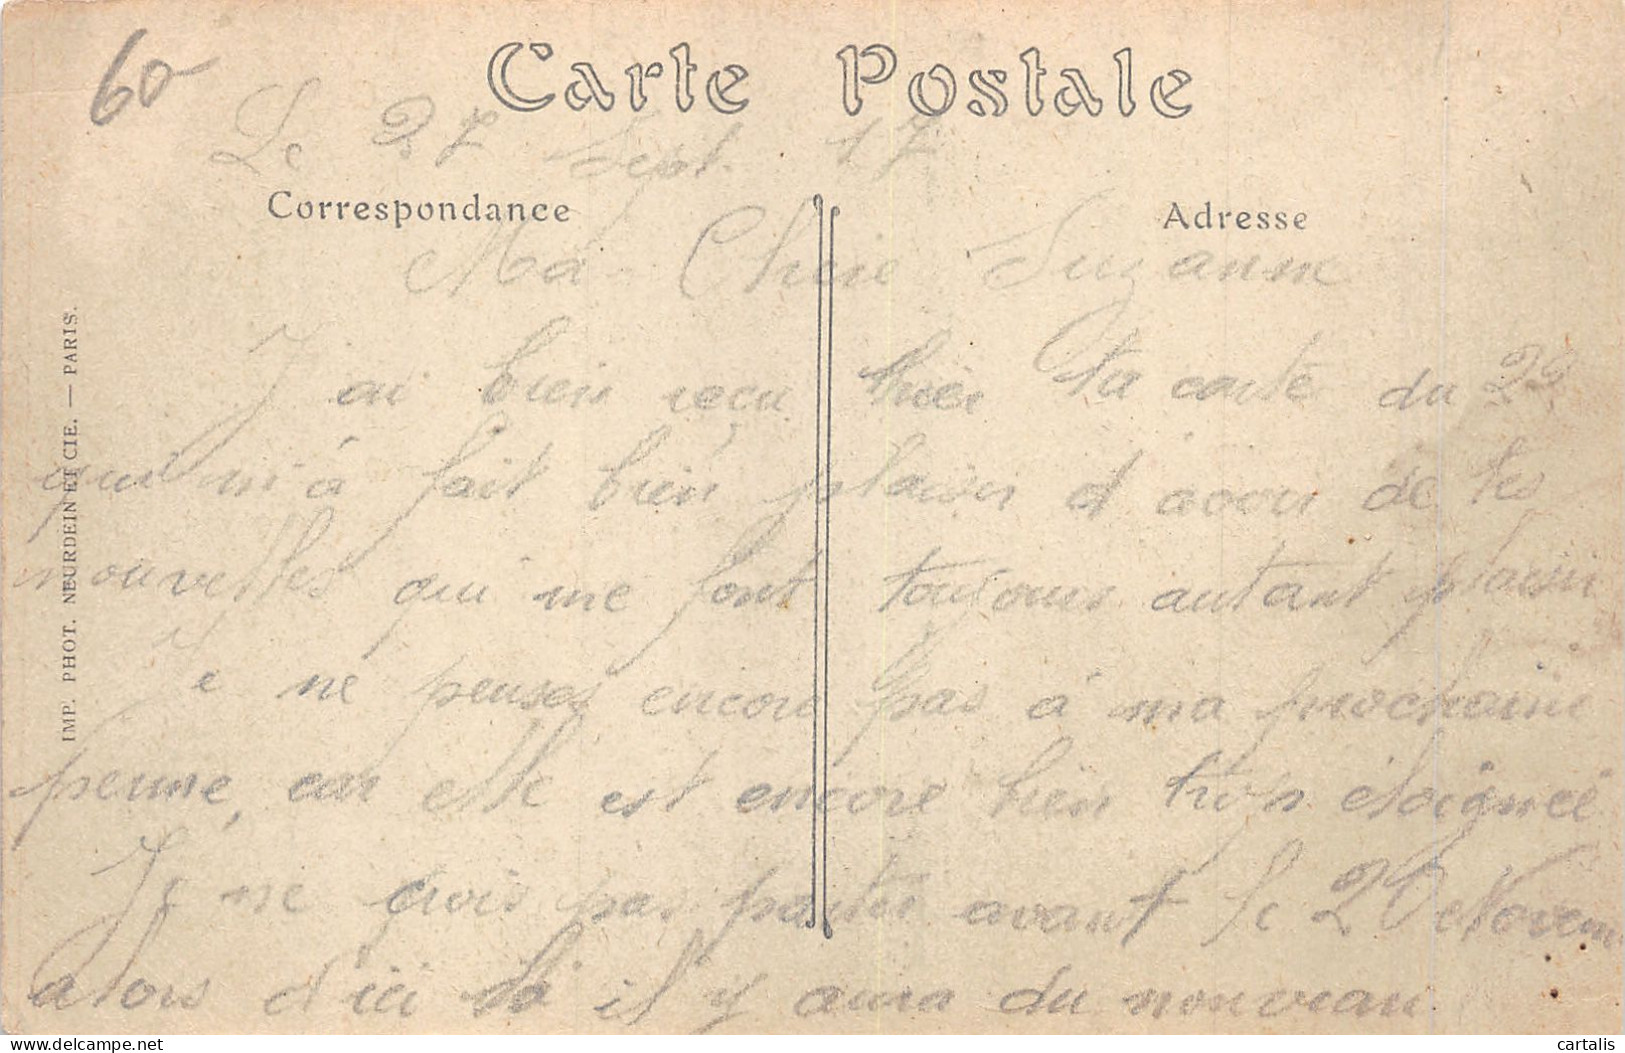 60
Carte Postale
Le 27 Sept. 17
Correspondance
Adresse
Ma Chere Suzanne
J ai bien reçu hier ta carte du 22
qui m'à fait bien plaisir d'avoir de tes
nouvelles qui me font toujours autant plaisir
Je ne penses encore pas à ma prochaine
perme, car elle est encore bien trop éloignée
Je ne crois pas partir avant le 20 Novem
alors d'ici là il y aura du nouveau.
IMP. PHOT. NEURDEIN ET CIE. — PARIS.
cartalis
delcampe.net